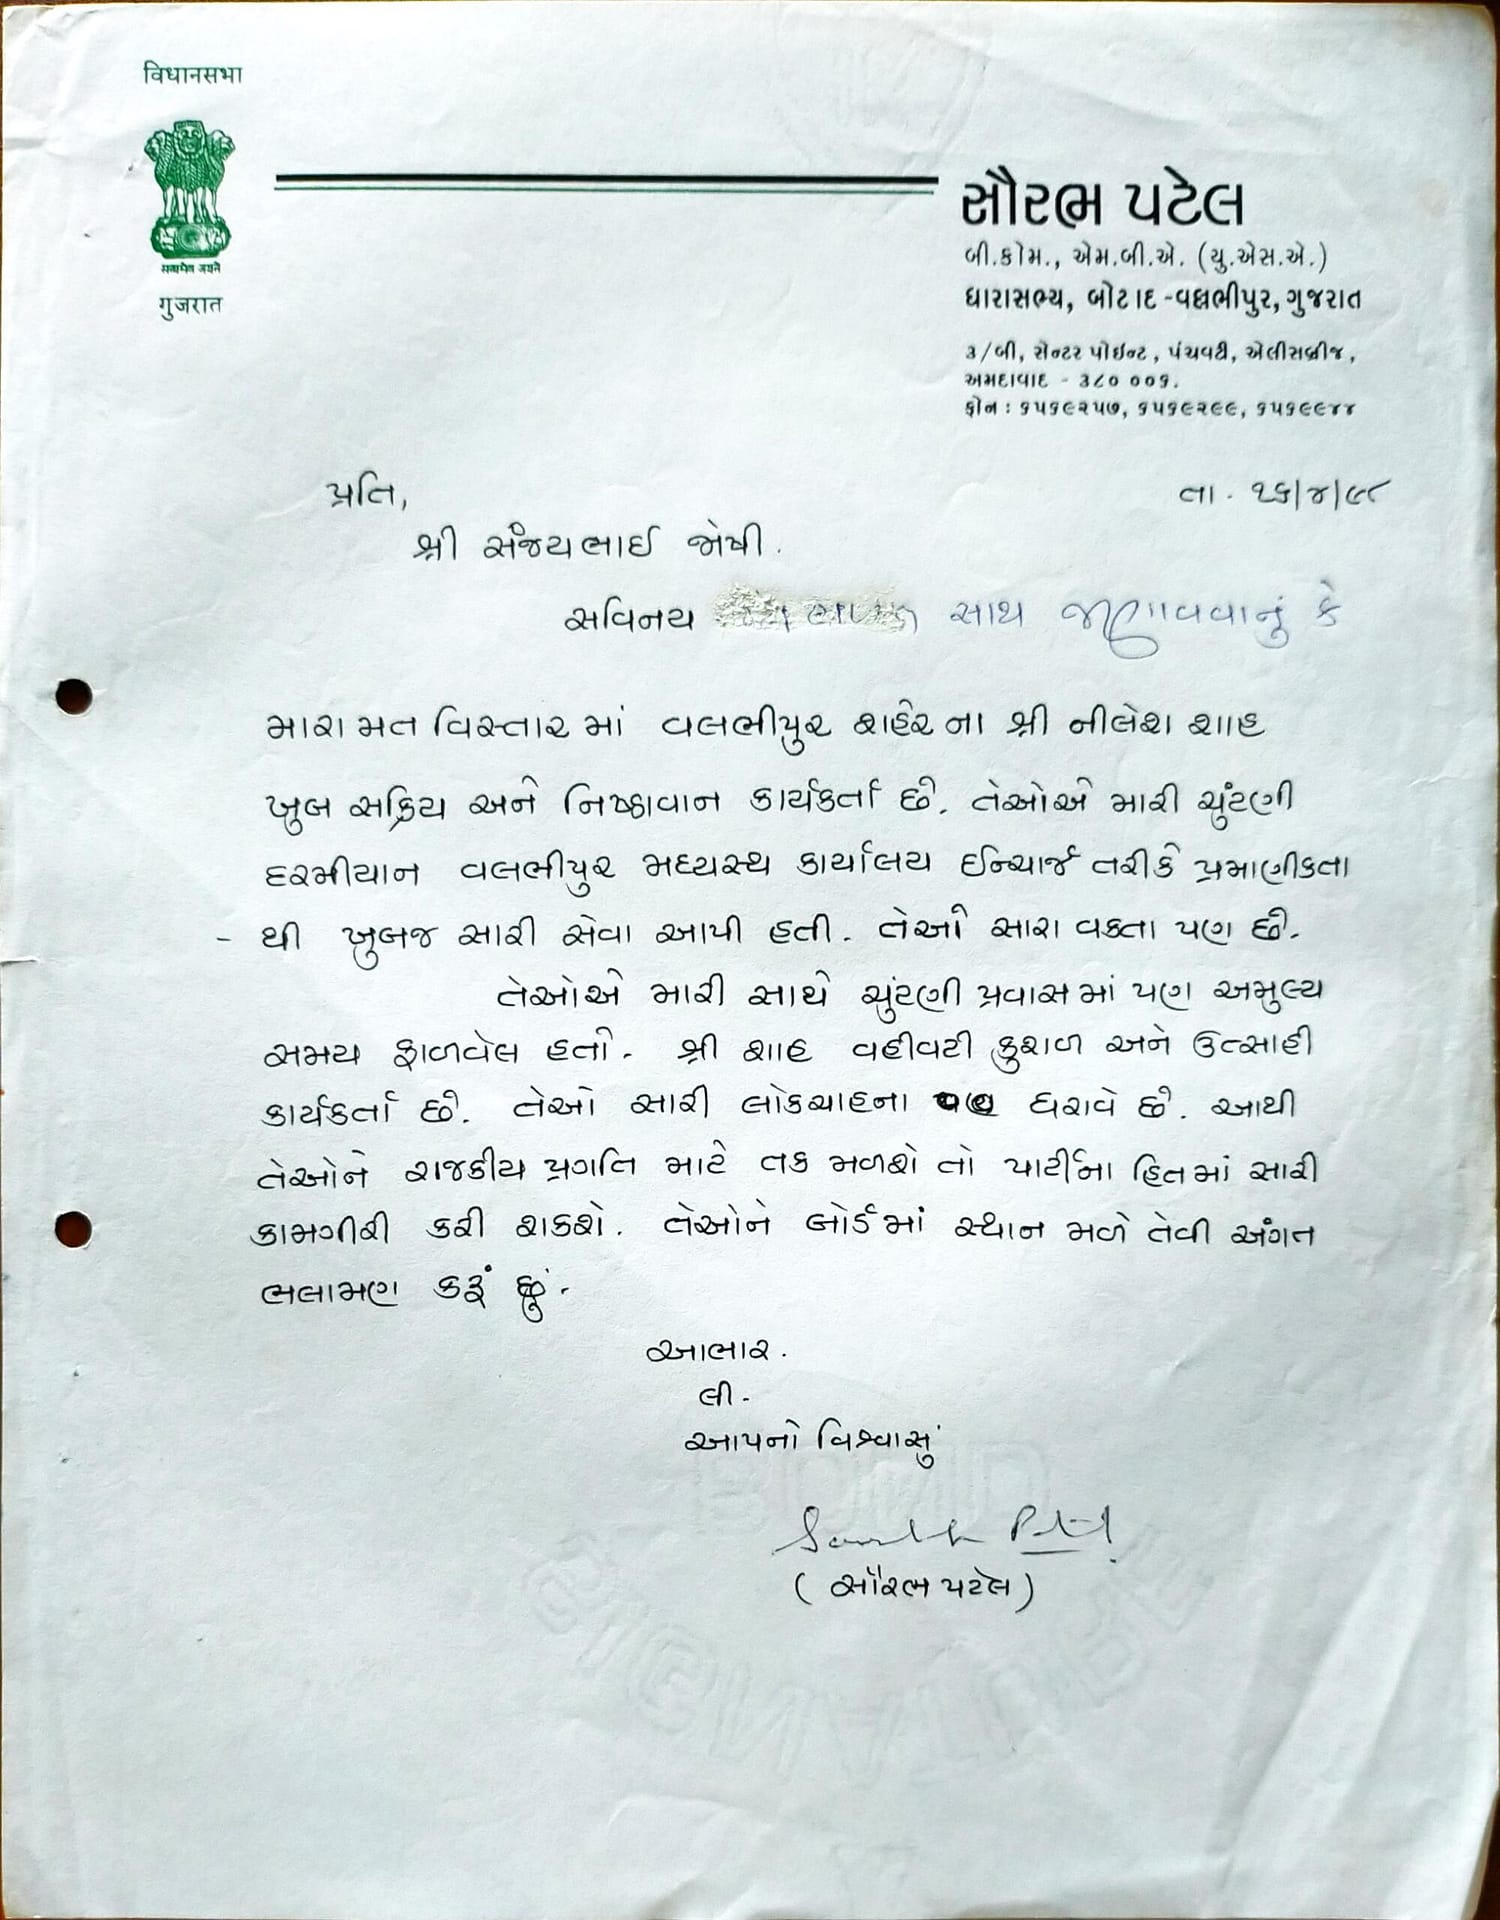 विधानसभा
सत्यमेव जयते
गुजरात
સૌરભ પટેલ
બી.કોમ., એમ.બી.એ. (યુ.એસ.એ.)
ધારાસભ્ય, બોટાદ-વલ્લભીપુર, ગુજરાત
૩/બી, સેન્ટર પોઈન્ટ, પંચવટી, એલીસબ્રીજ,
અમદાવાદ - ૩૮૦ ૦૦૬.
ફોન : ૬૫૬૯૨૫૭, ૬૫૬૯૨૯૯, ૬૫૬૯૯૪૪
પ્રતિ,
તા. ૨૬/૪/૯૮
શ્રી સંજયભાઈ જોષી.
સવિનય સાથ જણાવવાનું કે
મારા મત વિસ્તારમાં વલભીપુર શહેરના શ્રી નીલેશ શાહ
ખુબ સક્રિય અને નિષ્ઠાવાન કાર્યકર્તા છે. તેઓએ મારી ચુંટણી
દરમીયાન વલભીપુર મધ્યસ્થ કાર્યાલય ઈન્ચાર્જ તરીકે પ્રમાણીકતા
- થી ખુબજ સારી સેવા આપી હતી. તેઓ સારા વકતા પણ છે.
તેઓએ મારી સાથે ચુંટણી પ્રવાસમાં પણ અમુલ્ય
સમય ફાળવેલ હતો. શ્રી શાહ વહીવટી કુશળ અને ઉત્સાહી
કાર્યકર્તા છે. તેઓ સારી લોકચાહના પણ ધરાવે છે. આથી
તેઓને રાજકીય પ્રગતિ માટે તક મળશે તો પાર્ટીના હિતમાં સારી
કામગીરી કરી શકશે. તેઓને બોર્ડમાં સ્થાન મળે તેવી અંગત
ભલામણ કરૂં છું.
આભાર.
લી.
આપનો વિશ્વાસું
Saurabh Patel
(સૌરભ પટેલ)